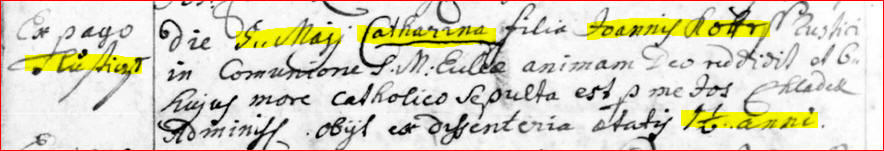 Ex pago
die 5. Maji Catharina filia Joannis Rustici
in Comunione S. M. Eccl[ae] animam Deo reddidit et
hujus more catholico sepulta est p me Jos Chladek
Administ. obijt ex dissenteria aetatis anni.